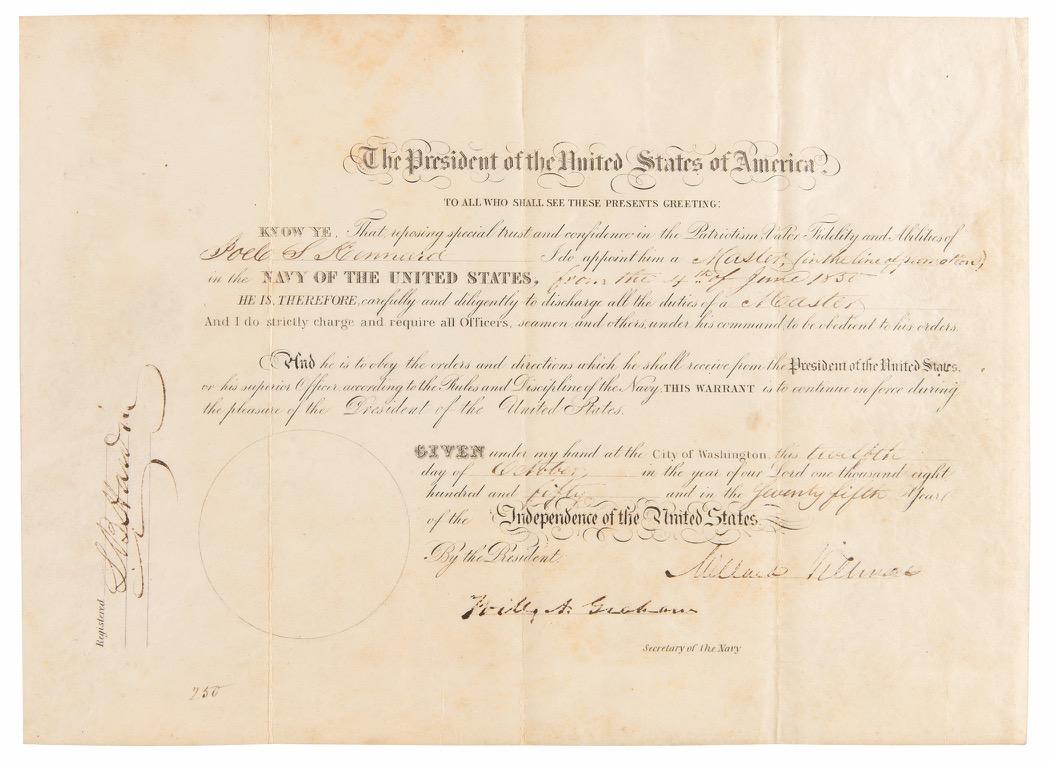 The President of the United States of America.
TO ALL WHO SHALL SEE THESE PRESENTS GREETING:
KNOW YE, That reposing special trust and confidence in the Patriotism, Valor, Fidelity and Abilities of
Joel S Kennard I do appoint him a Master, (in the line of promotion,)
in the NAVY OF THE UNITED STATES, from the 4th of June 1850
HE IS, THEREFORE, carefully and diligently to discharge all the duties of a Master
And I do strictly charge and require all Officers, seamen and others, under his command, to be obedient to his orders.
And he is to obey the orders and directions which he shall receive from the President of the United States,
or his superior Officer, according to the Rules and Discipline of the Navy. THIS WARRANT is to continue in force during
the pleasure of the President of the United States.
GIVEN under my hand at the City of Washington, this twelfth
day of October in the year of our Lord one thousand eight
hundred and fifty and in the Seventy fifth Year
of the Independence of the United States.
By the President:
Millard Fillmore
Will. A. Graham
Secretary of the Navy
Registered
250